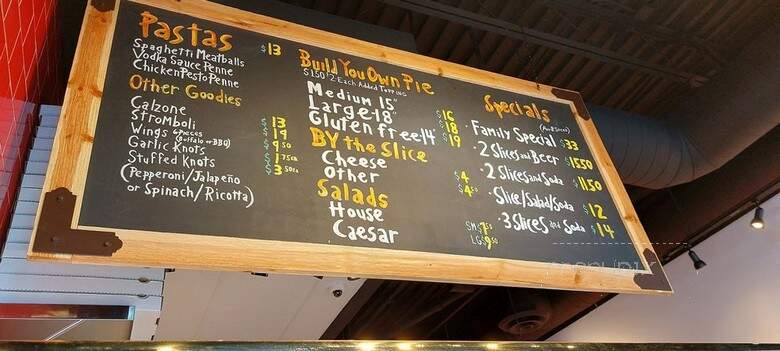 Pastas
Spaghetti Meatballs $13
Vodka Sauce Penne
Chicken Pesto Penne
Other Goodies
Calzone $13
Stromboli $19
Wings 6 Pieces (Buffalo or BBQ) $9 50
Garlic Knots $1 75 ea
Stuffed Knots $3 50 ea
(Pepperoni/Jalapeño
or Spinach/Ricotta)
Build You Own Pie
$1.50 $2 Each Added Topping
Medium 15" $16
Large-18" $18
Gluten free 14 $19
BY the Slice
Cheese $4
Other $4 50
Salads
House SM$7 50
Caesar LG$9 50
Specials
Family Special $33
2 Slices and Beer $15.50
2 Slices and Soda $11.50
Slice/Salad/Soda $12
3 Slices and Soda $14